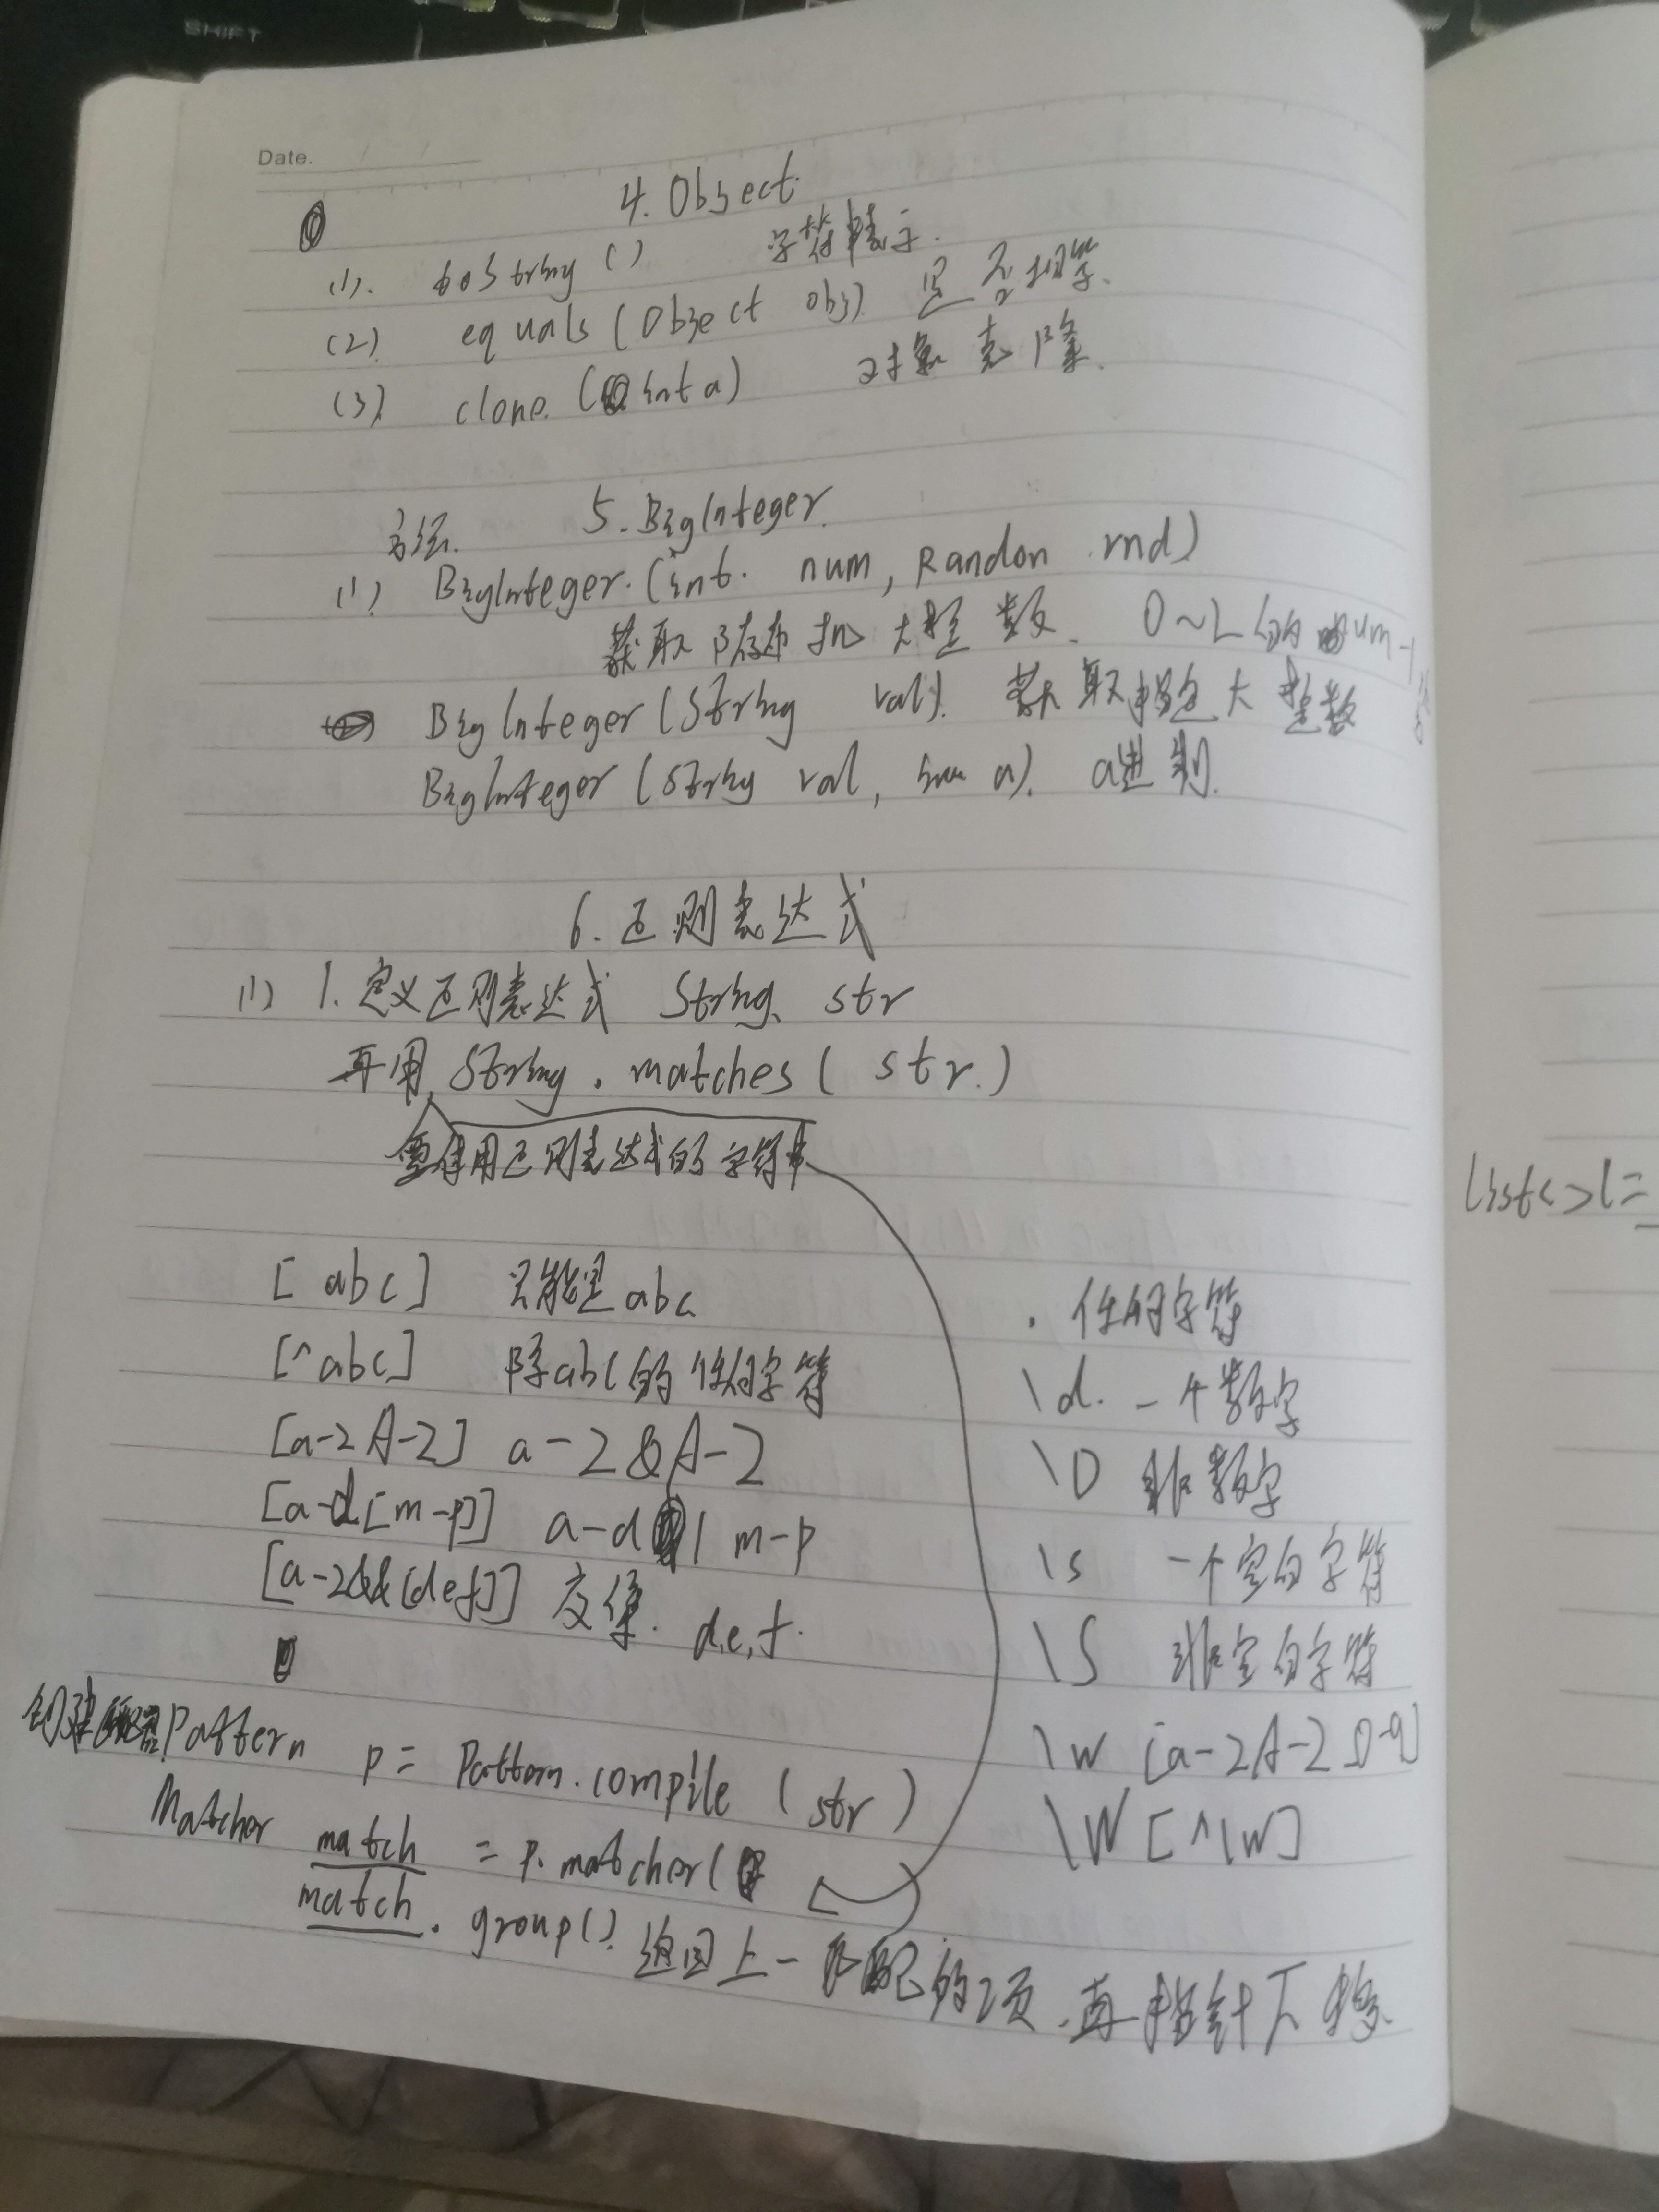 SHIFT
Date.
4. Object
(1). toString() 字符串表示.
(2). equals(Object obj) 是否相等.
(3). clone.(int a) 对象克隆.
方法. 5. BigInteger.
(1) BigInteger.(int. num, Random rnd)
获取随机大整数. 0~2 的 num-1
BigInteger(String val). 获取指定大整数
BigInteger(String val, a). a进制.
6. 正则表达式
(1) 1. 定义正则表达式 String str
再用 String.matches( str.)
要使用正则表达式的字符串
[abc] 只能是abc
[^abc] 除abc的任何字符
[a-zA-Z] a-z & A-Z
[a-d[m-p]] a-d | m-p
[a-z&&[def]] 交集. d.e.f.
. 任何字符
\d. 一个数字
\D 非数字
\s 一个空白字符
\S 非空白字符
\w [a-zA-Z 0-9]
\W [^\w]
创建 Pattern p = Pattern.compile(str)
Matcher match = p.matcher(
match.group(). 返回上一匹配的项.再指针下移
List<>l=